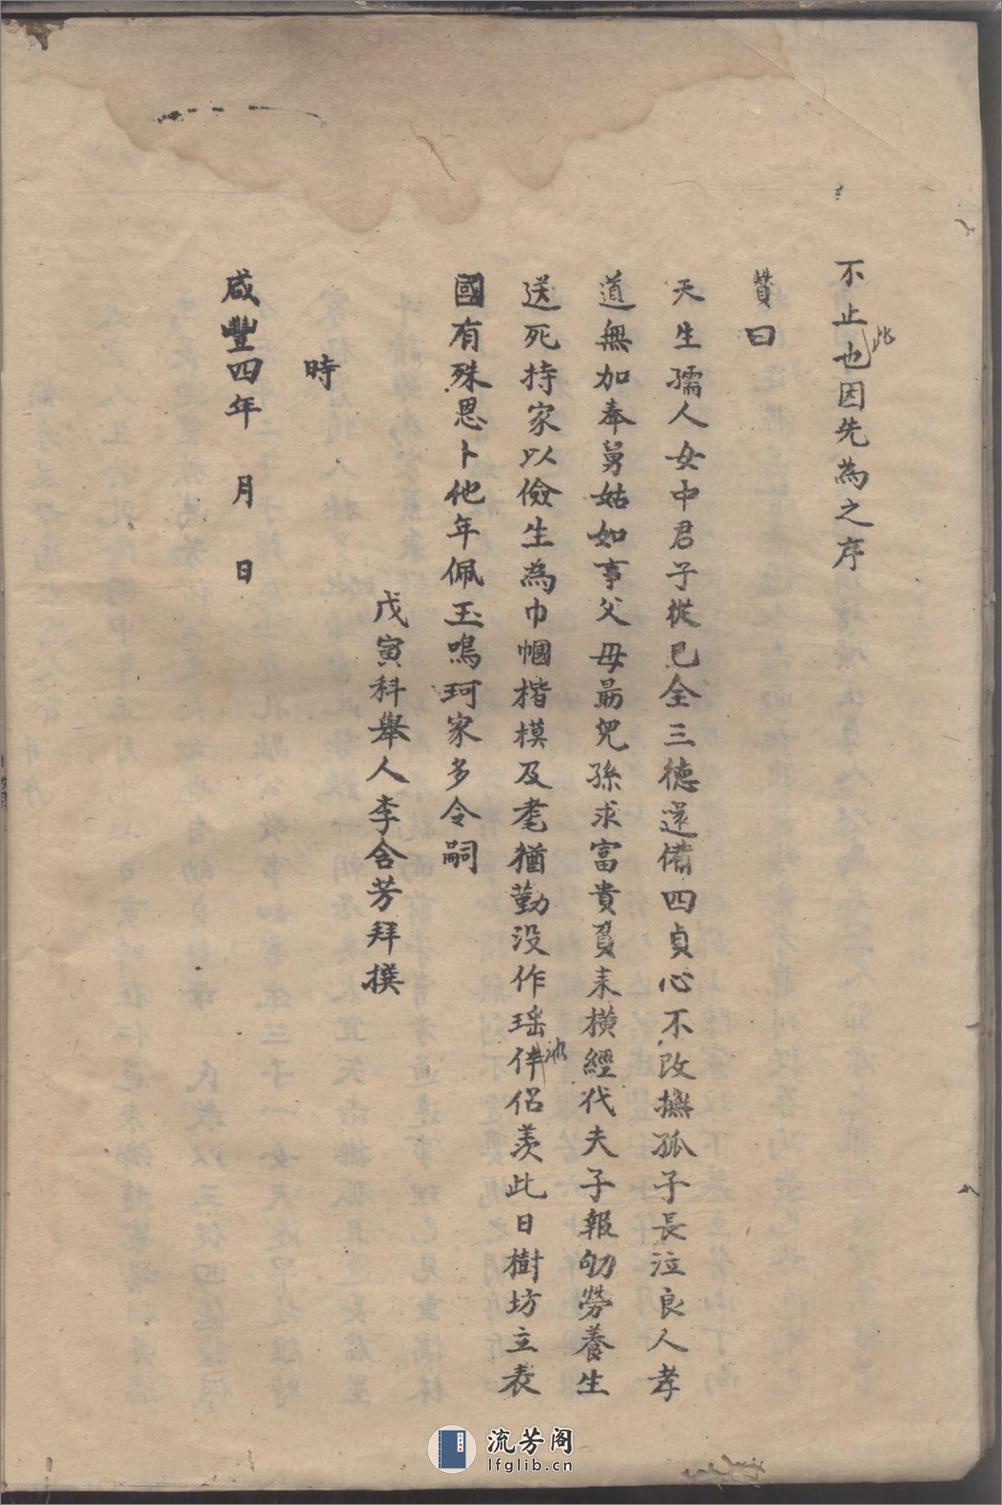 不止此也因先為之序
贊曰
天生孺人女中君子從已全三德還備四貞心不改撫孤子長泣良人孝
道無加奉舅姑如事父母勗兒孫求富貴負耒橫經代夫子報劬勞養生
送死持家以儉生為巾幗楷模及耄猶勤没作瑶池伴侶羨此日樹坊立表
國有殊恩卜他年佩玉鳴珂家多令嗣
戊寅科舉人李含芳拜撰
時
咸豐四年 月 日
流芳阁
lfglib.cn